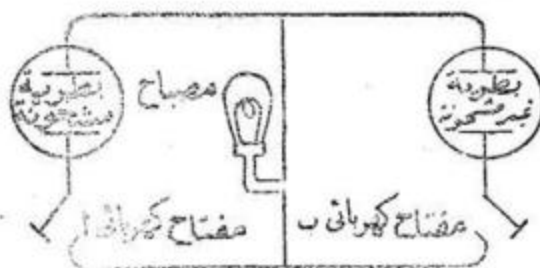 بطارية
مشحونة
مصباح
بطارية
غير مشحونة
مفتاح كهربائى ا
مفتاح كهربائى ب